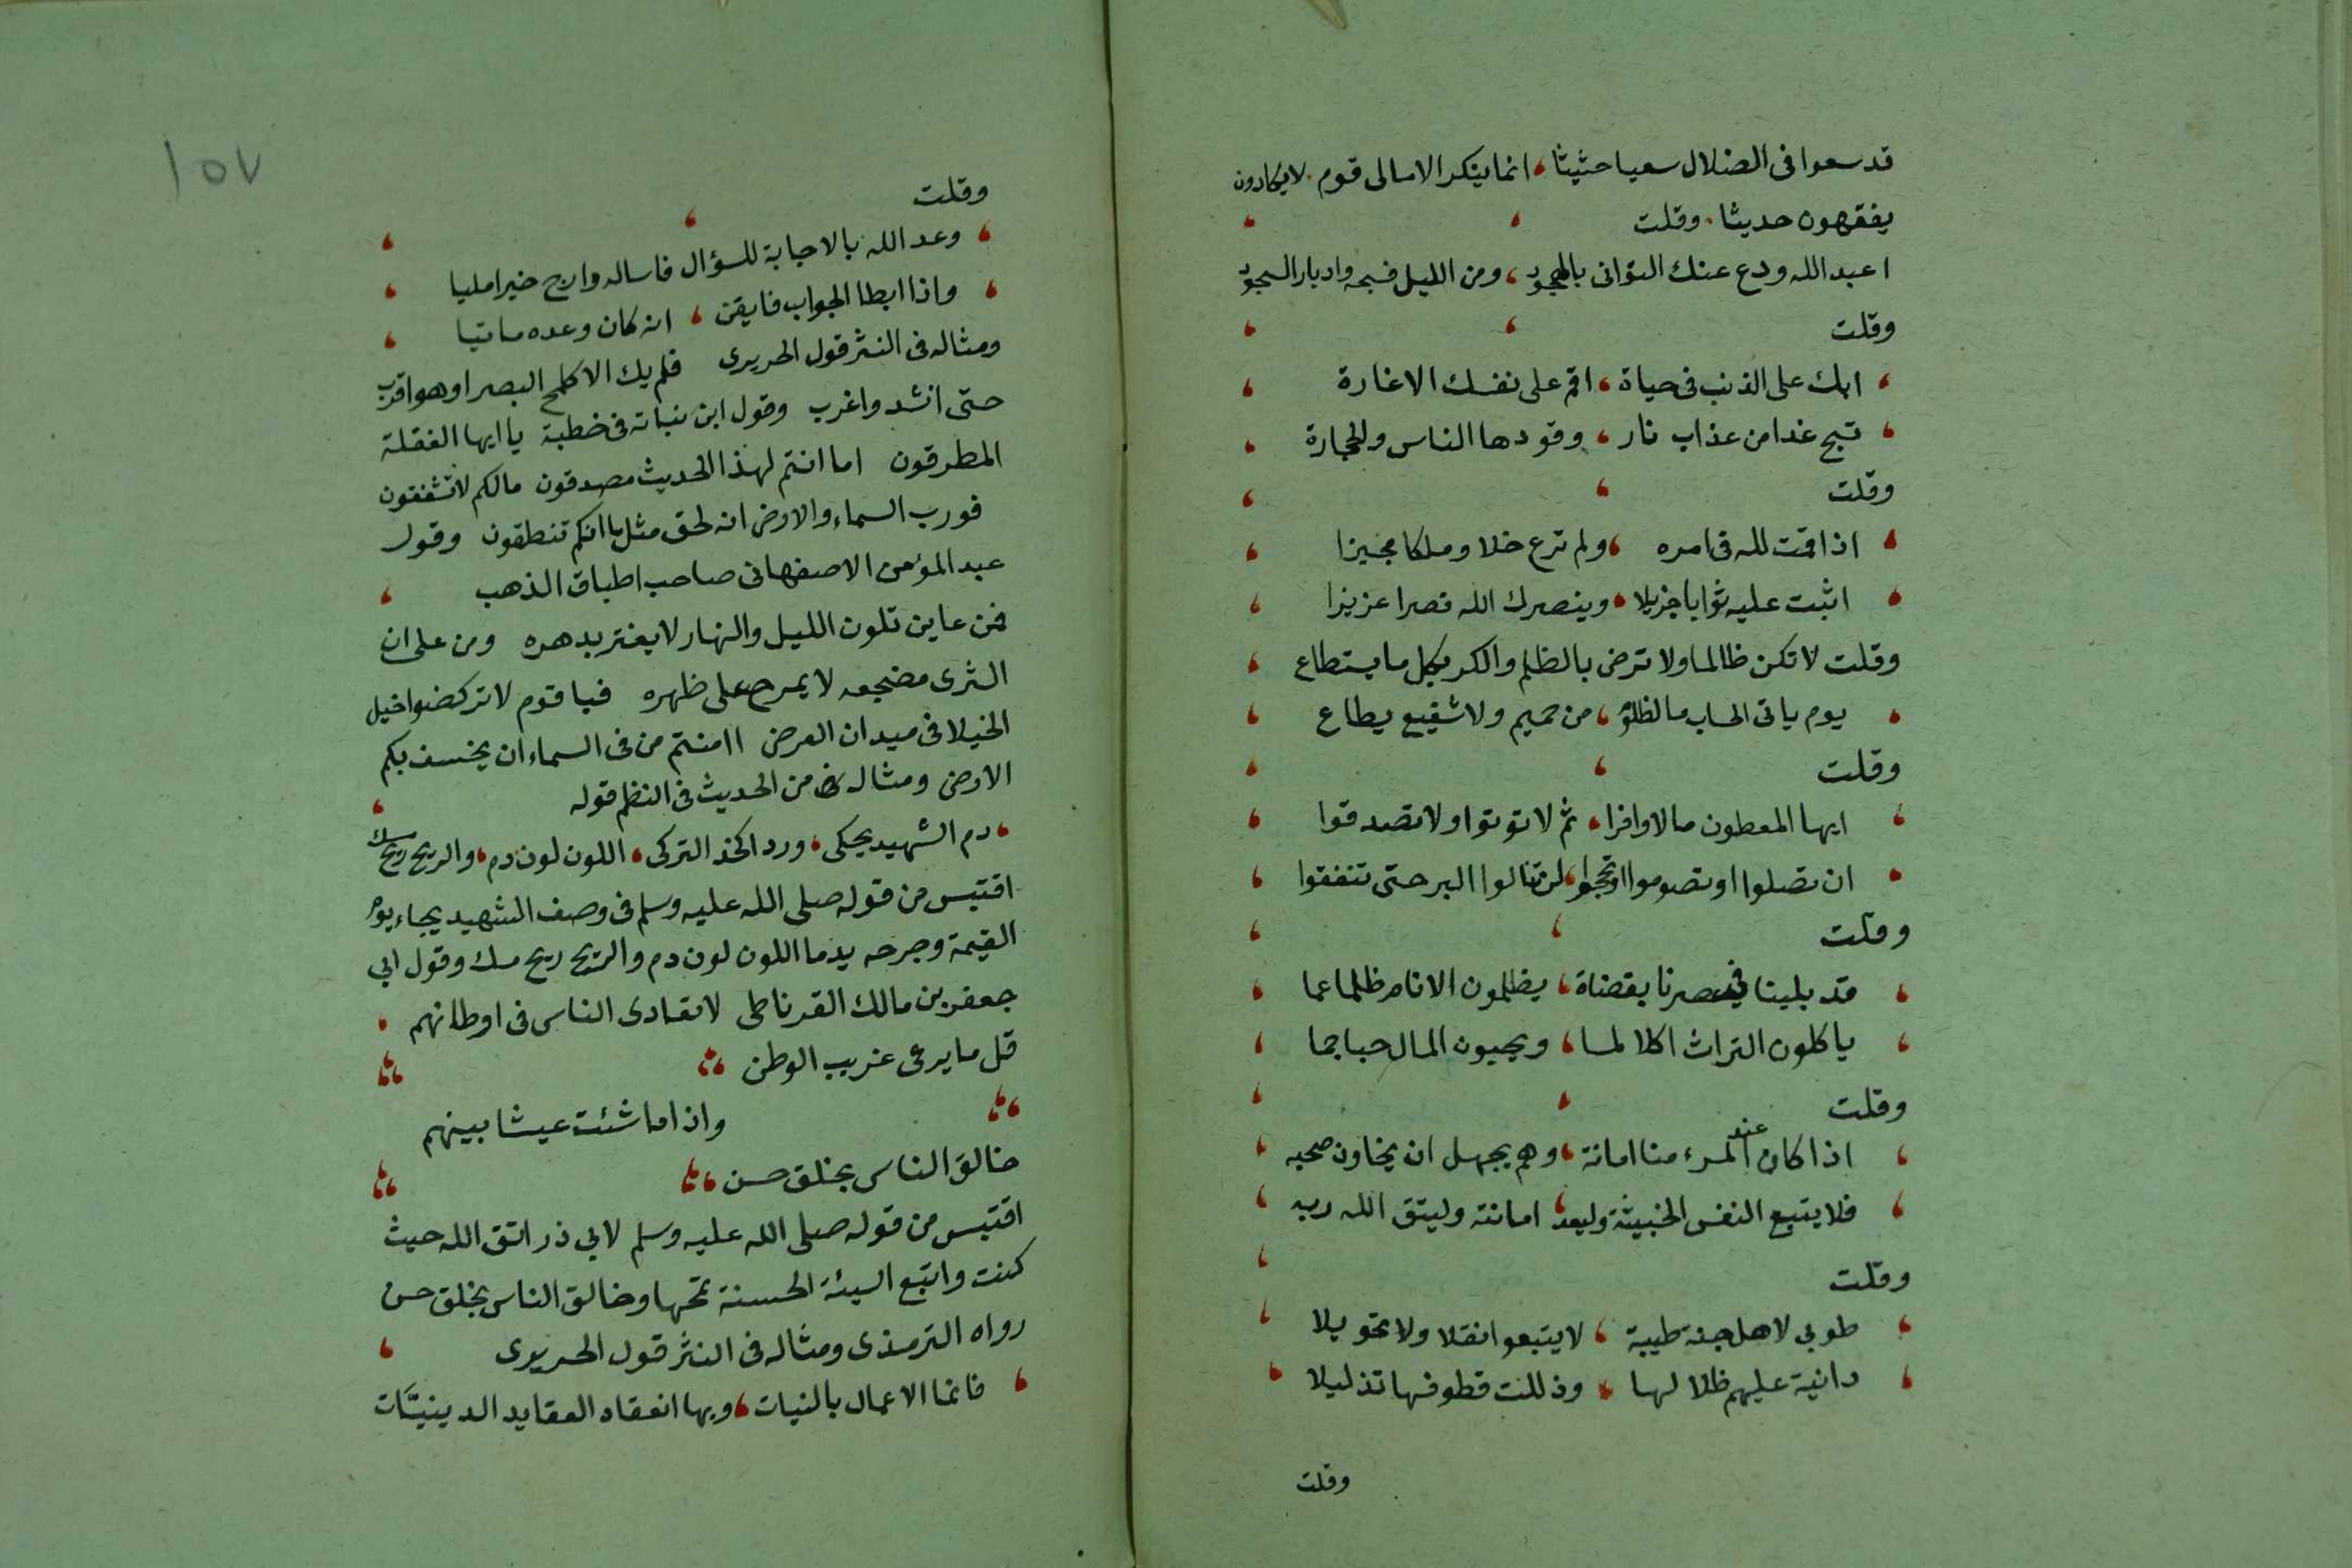 قد سعوا فى الضلال سعيا حثيثا، انما ينكر الامالى قوم. لا يكادون
يفقهون حديثا. وقلت
اعبد الله ودع عنك التوانى بالهجود، ومن الليل فسبحه وادبار السجود
وقلت
ابك على الذنب فى حياة، اقم على نفسك الاغارة
تنج غدا من عذاب نار، وقودها الناس والحجارة
وقلت
اذا قمت لله فى امره، ولم ترع خلا وملكا مجيزا
اثبت عليه ثوابا جزيلا، وينصرك الله نصرا عزيزا
وقلت لا تكن ظالما ولا ترض بالظلم والكر بكل ما يستطاع
يوم ياتى الحساب ما لظلوم، من حميم ولا شفيع يطاع
وقلت
ايها المعطون مالا وافرا، ثم لا توتوا ولا تصدقوا
ان تصلوا او تصوموا او تحجوا، لن تنالوا البر حتى تنفقوا
وقلت
قد بلينا فى عصرنا بقضاة، يظلمون الانام ظلما عما
ياكلون التراث اكلا لما، ويحبون المال حبا جما
وقلت
اذا كان عند المرء منا امانة، وهم بجهل ان يخاون صحبه
فلا يتبع النفس الخبيثة وليعد، امانته وليتق الله ربه
وقلت
طوبى لاهل جنة طيبة، لا يتبعوا نقلا ولا تحويلا
دانية عليهم ظلالها، وذللت قطوفها تذليلا
وقلت
١٥٧
وقلت
وعد الله بالاجابة للسؤال فاساله وارج خيرا مليا
واذا ابطا الجواب فايقن، انه كان وعده ماتيا
ومثاله فى النثر قول الحريرى فلم يك الا كلمح البصر او هو اقرب
حتى انشد واغرب وقول ابن نباتة فى خطبة يا ايها الغفلة
المطرقون اما انتم لهذا الحديث مصدقون مالكم لا تشفقون
فورب السماء والارض انه لحق مثل ما انكم تنطقون وقول
عبد المؤمن الاصفهانى صاحب اطباق الذهب
فمن عاين تلون الليل والنهار لا يغتر بدهره ومن علم ان
الثرى مضجعه لا يمرح على ظهره فيا قوم لا تركضوا خيل
الخيلا فى ميدان العرض اامنتم من فى السماء ان يخسف بكم
الارض ومثاله من الحديث فى النظم قوله
دم الشهيد يحكى، ورد الخد التركى، اللون لون دم، والريح ريح مسك
اقتبس من قوله صلى الله عليه وسلم فى وصف الشهيد يجاء يوم
القيمة وجرحه يدما اللون لون دم والريح ريح مسك وقول ابى
جعفر بن مالك القرناطى لا تعادى الناس فى اوطانهم
قل ما يرعى غريب الوطن
واذا ما شئت عيشا بينهم
خالق الناس بخلق حسن
اقتبس من قوله صلى الله عليه وسلم لابى ذر اتق الله حيث
كنت واتبع السيئة الحسنة تمحها وخالق الناس بخلق حسن
رواه الترمذى ومثاله فى النثر قول الحريرى
فانما الاعمال بالنيات، وبها انعقاد العقايد الدينيات